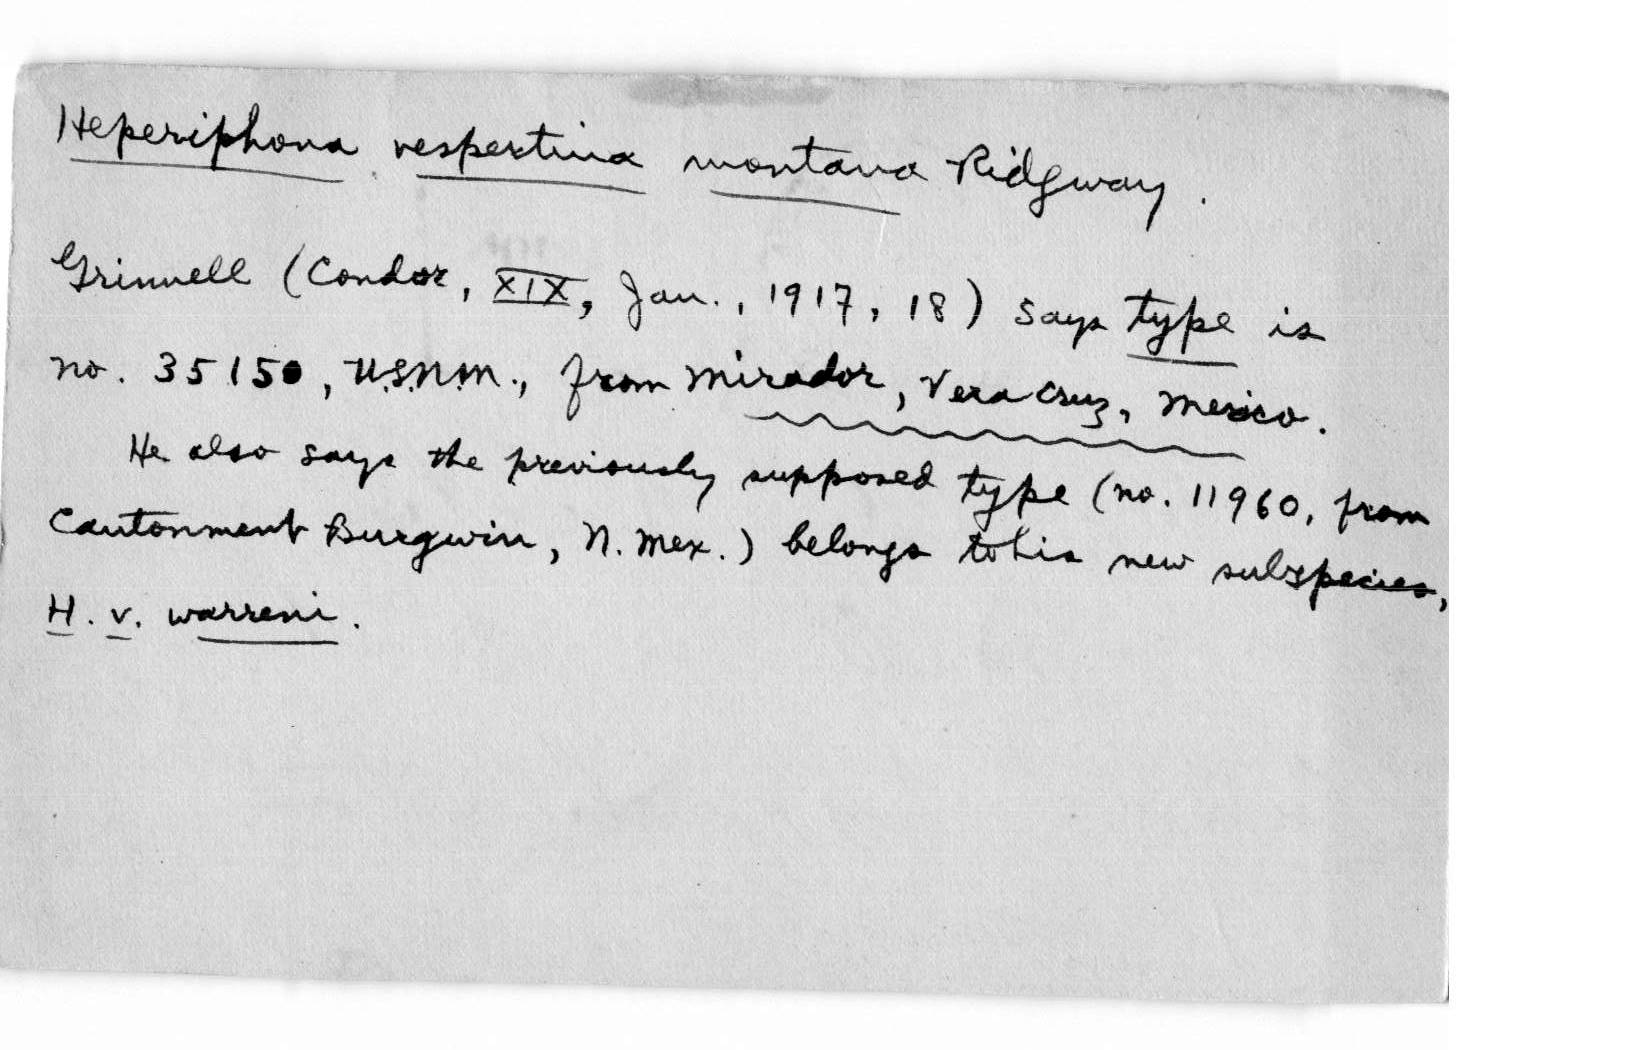 Heperiphona vespertina montana Ridgway.
Grinnell (Condor, XIX, Jan., 1917, 18) says type is
no. 35150, U.S.N.M., from Mirador, Vera Cruz, Mexico.
He also says the previously supposed type (no. 11960, from
Cantonment Burgwin, N. Mex.) belongs to his new subspecies,
H. v. warreni.